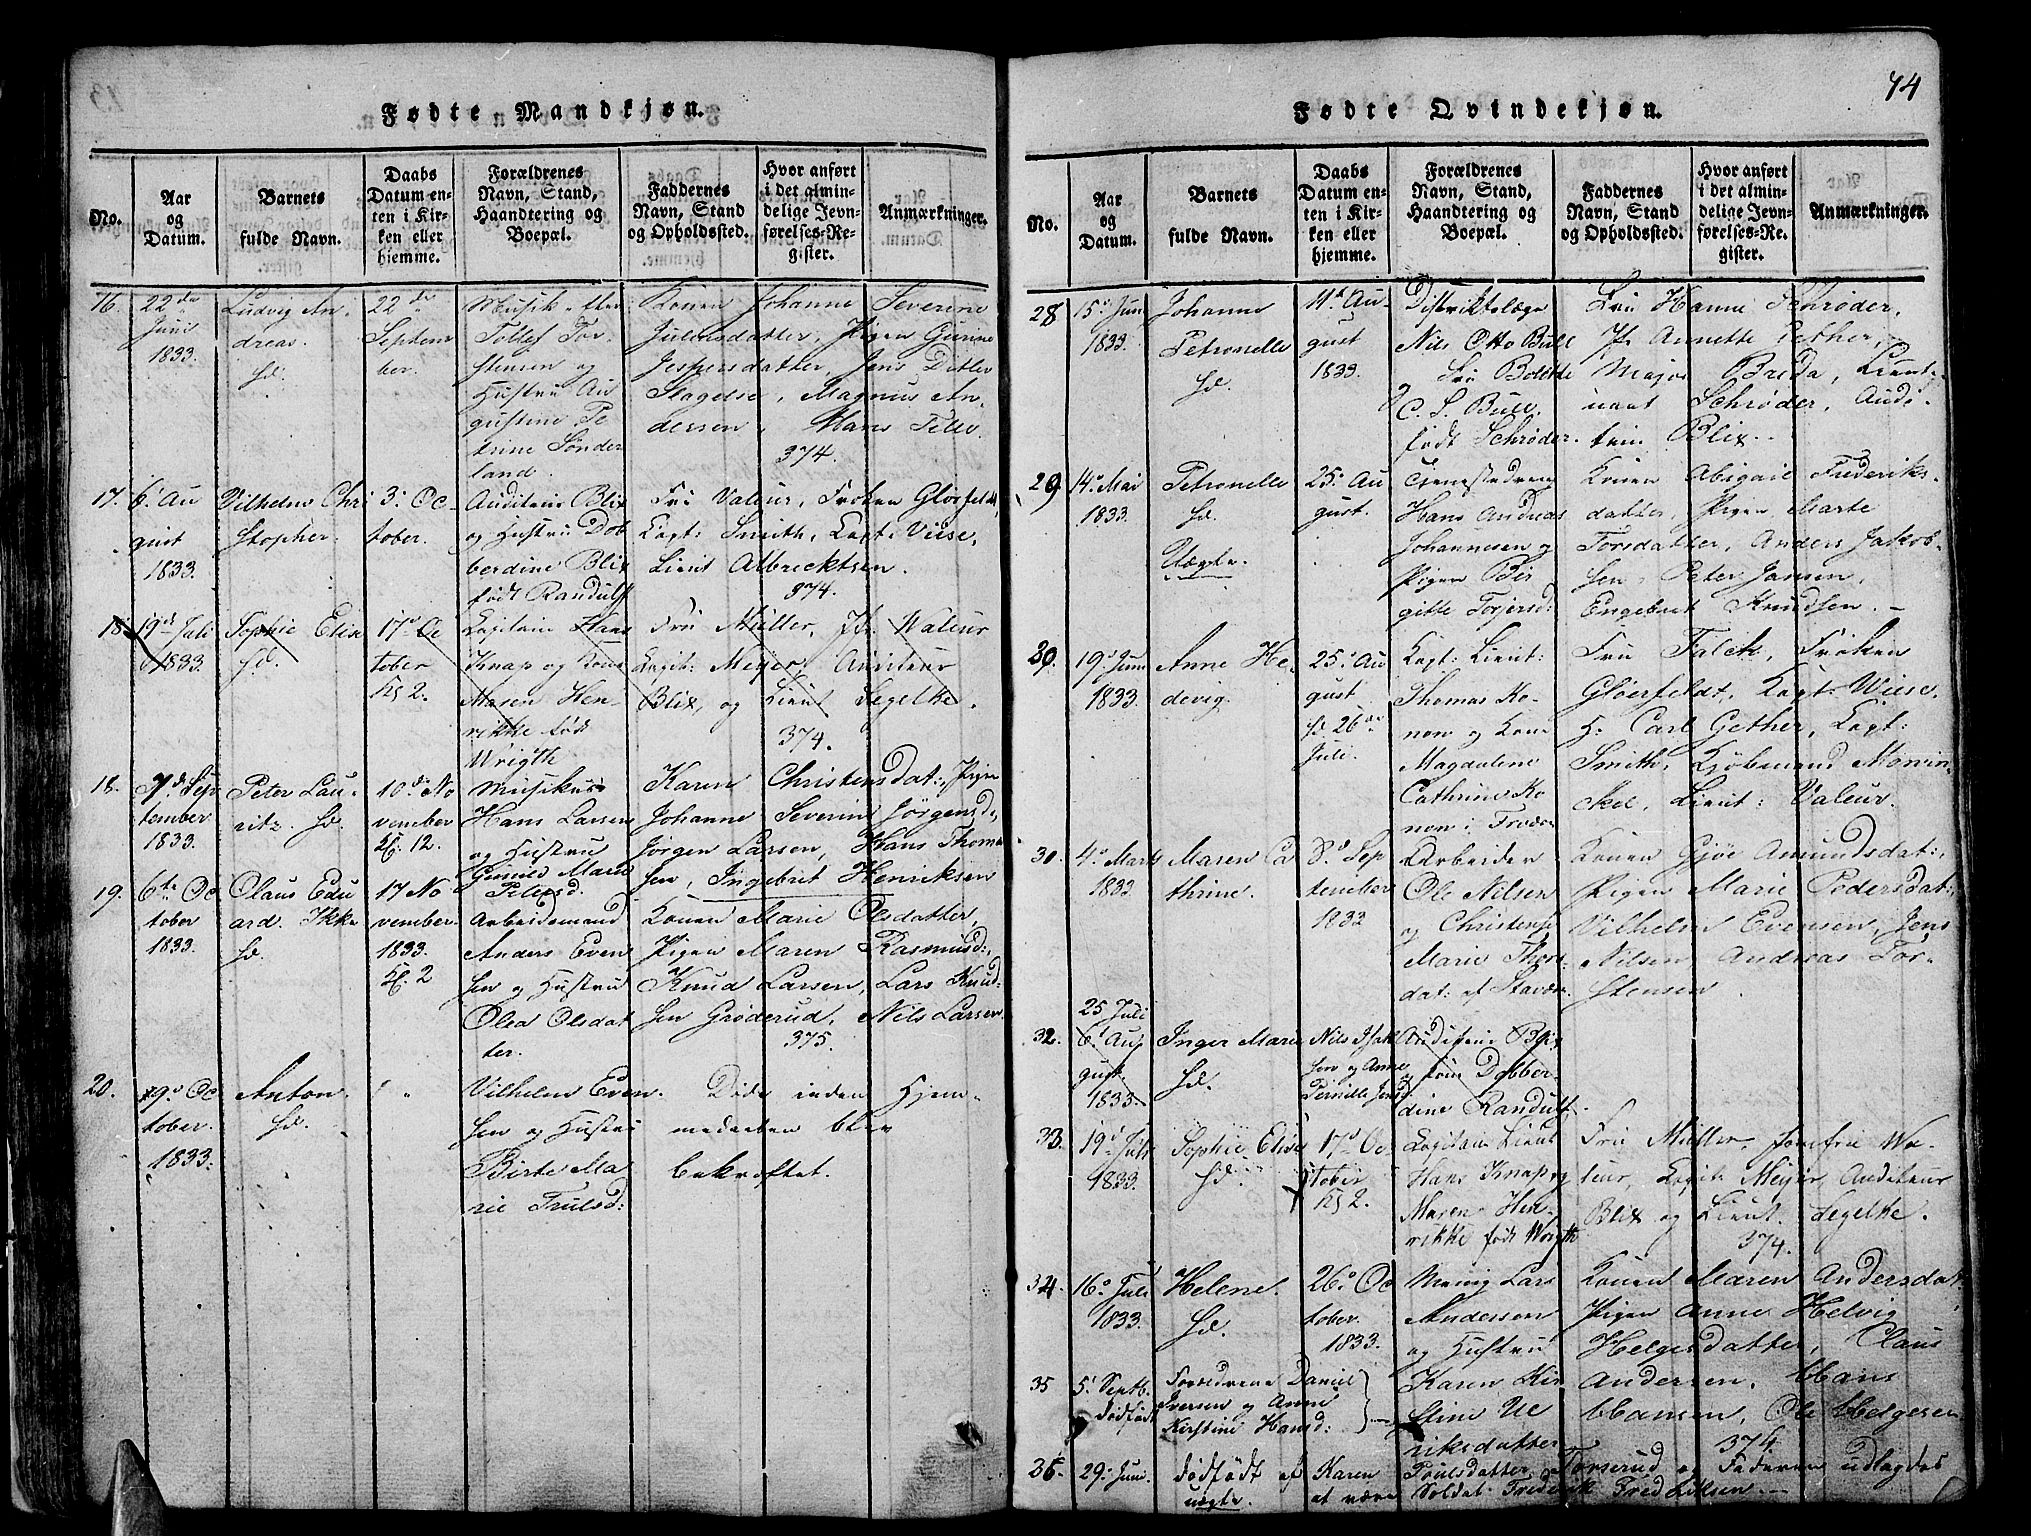 Fødte Mandkjøn.
No.
Aar
og
Datum.
Barnets
fulde Navn.
Daabs
Datum en-
ten i Kir-
ken eller
hjemme.
Forældrenes
Navn, Stand,
Haandtering og
Boepæl.
Faddernes
Navn, Stand
og Opholdssted.
Hvor anført
i det almin-
delige Jevn-
førelses-Re-
gister.
Anmærkninger.
16.
22de
Juni
1833.
Ludvig An-
dreas.
hd.
22de
Septem
ber.
Tollef Tor-
stensen og
Hustru Au
gustine Pe
trine Sønder
land.
Konen Johanne Severine
Julensdatter, Pigen Gurine
Jespersdatter, Jens Ditlev
Slagelse, Magnus An-
dersen, Hans Feld.
374.
17.
6. Au
gust
1833.
Vilhelm Chri
stopher.
3. Oc-
tober.
Auditeur Blix
og Hustru Dob
berdine Blix
født Randulf
Fru Valeur, Frøken Glørfeldt,
Capt: Smith, Capt: Wise,
Lieut Albrecktsen.
374.
18.
19de Juli
1833.
Sophie Elise
hd.
17. Oc
tober
Capitain Hans
Knap og Kone
Maren Hen-
rikke født
Wrigth
Fru Müller, Jfr. Valeur
Capit: Meyer, Auditeur
Blix, og Lieut Segelke.
374.
18.
7d. Sep
tember
1833.
Peter Lau-
ritz. hd.
10d. No
vember
12.
Musikus
Hans Larsen
og Hustru
Gunild Marie
Petersd.
Karen Christensdat:, Pigen
Johanne Severin Jørgensd:,
Jørgen Larsen, Hans Thom
sen, Ingebrit Henriksen
19.
6te Oc
tober
1833.
Olaus Edu
ard. Ikke
hd.
17 No
vember
1833.
2
Arbeidsmand
Anders Even
sen og Hustru
Olea Olsdat
ter.
Konen Marie Olsdatter,
Pigen Maren Rasmusd:,
Knud Larsen, Lars Knud-
sen Grøderud, Nils Larsen
375.
20.
19. Oc
tober.
1833.
Anton.
hd.
Vilhelm Even
sen og Hustru
Birte Ma
rie Trulsd:
Døde inden Hjem-
medaaben blev
bekræftet.
74
Fødte Qvindekjøn.
No.
Aar
og
Datum.
Barnets
fulde Navn.
Daabs
Datum en-
ten i Kir-
ken eller
hjemme.
Forældrenes
Navn, Stand,
Haandtering og
Boepæl.
Faddernes
Navn, Stand
og Opholdssted.
Hvor anført
i det almin-
delige Jevn-
førelses-Re-
gister.
Anmærkninger.
28
15. Juni
1833.
Johanne
Petronelle
hd.
11. Au-
gust
1833.
Distriktslæge
Nils Otto Bull
Fru Bolette
C. S. Bull.
født Schrøder.
Fru Hanne Schrøder,
Jfr Annette Gether,
Major Breda, Lieut-
nant Schrøder, Audi-
teur Blix.
29
14. Mai
1833.
Petronelle
hd.
Uægte.
25. Au
gust.
Tjenestedreng
Hans Andreas
Johannesen og
Pigen Bir
gitte Torjersd:
Konen Abigael Frederiks-
datter, Pigen Marte
Torsdatter, Anders Jakob-
sen, Peter Jansen,
Engebret Knudsen.
30.
19. Juni
1833.
Anne He-
devig.
25. Au
gust
hd. 26
Juli.
Capt: Lieut:
Thomas Ko-
now og Kone
Magdalene
Cathrine Ko
now i
Fru Falck, Frøken
Gløerfeldt, Capt. Wiese.
H. Carl Gether, Capt:
Smith, Kjøbmand
Lieut: Valeur.
30.
4. Marts
1833.
Maren Ca
thrine.
8. Sep
tember
1833
Arbeider
Ole Nilsen
og Christense
Marie Thors
dat: af
Konen Gjøe Amundsdat:,
Pigen Marie Pedersdat:
Vilhelm Evensen, Jens
Nilsen Andreas Tor-
stensen.
32.
25 Juli
6. Au
gust
1833.
Inger Marie
hd.
Nils Isak
sen og Anne
Pernille Jensd
Auditeur Blix
og Fru Dobber-
dine Randulf.
33.
19d Juli
1833.
Sophie Elise
hd.
17d Oc
tober
Capitain Lieut
Hans Knap og
Maren Hen-
rikke født Wrigth
Fru Müller. Jomfru Va-
leur, Capit. Meyer, Auditeur
Blix og Lieut. Segelke.
374.
34.
16. Juli
1833.
Helene.
hd.
26. Oc
tober.
1833.
Lars
Andersen
og Hustru
Karen Kir
stine Ul
riksdatter
Konen Maren Andersdat
Pigen Anne Helvig
Helgesdatter, Claus
Andersen, Hans
Hansen, Ole Helgesen
374.
35
5. Septb.
dødfødt
Forældrene Daniel
Iversen og Anne
Kirstine Hansd:
36.
29. Juni.
dødfødt af Karen Poulsdatter Torserud og Faderen udlagdes
uægte. at være Soldat Frederik Fredriksen.